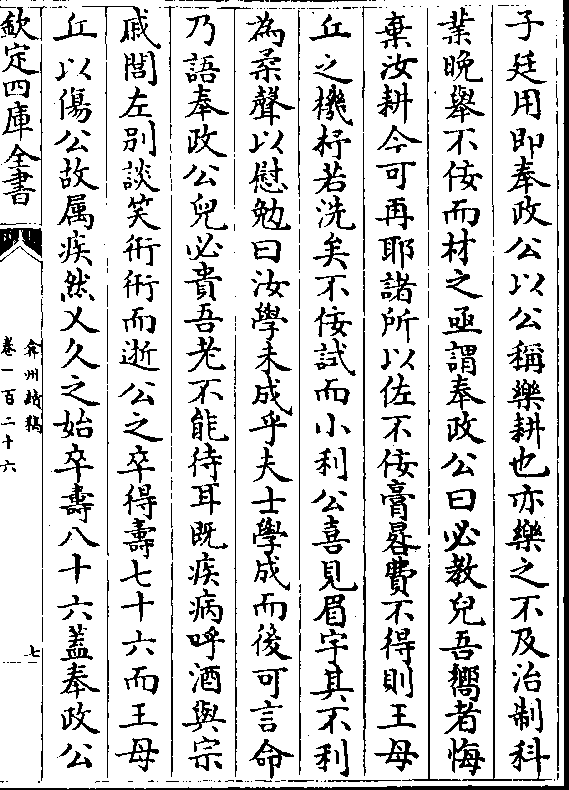 子廷用即奉政公以公稱樂耕也亦樂之不及治制科
業晚舉不佞而材之亟謂奉政公曰必教兒吾嚮者悔
棄汝耕今可再耶諸所以佐不佞膏晷費不得則王母
丘之機杼若洗矣不佞試而小利公喜見眉宇其不利
為柔聲以慰勉曰汝學未成乎夫士學成而後可言命
乃語奉政公兒必貴吾老不能待耳既疾病呼酒與宗
戚閭左別談笑衎衎而逝公之卒得壽七十六而王母
丘以傷公故属疾然乂久之始卒壽八十六蓋奉政公
欽定四庫全書
弇州續稿
卷一百二十六
七